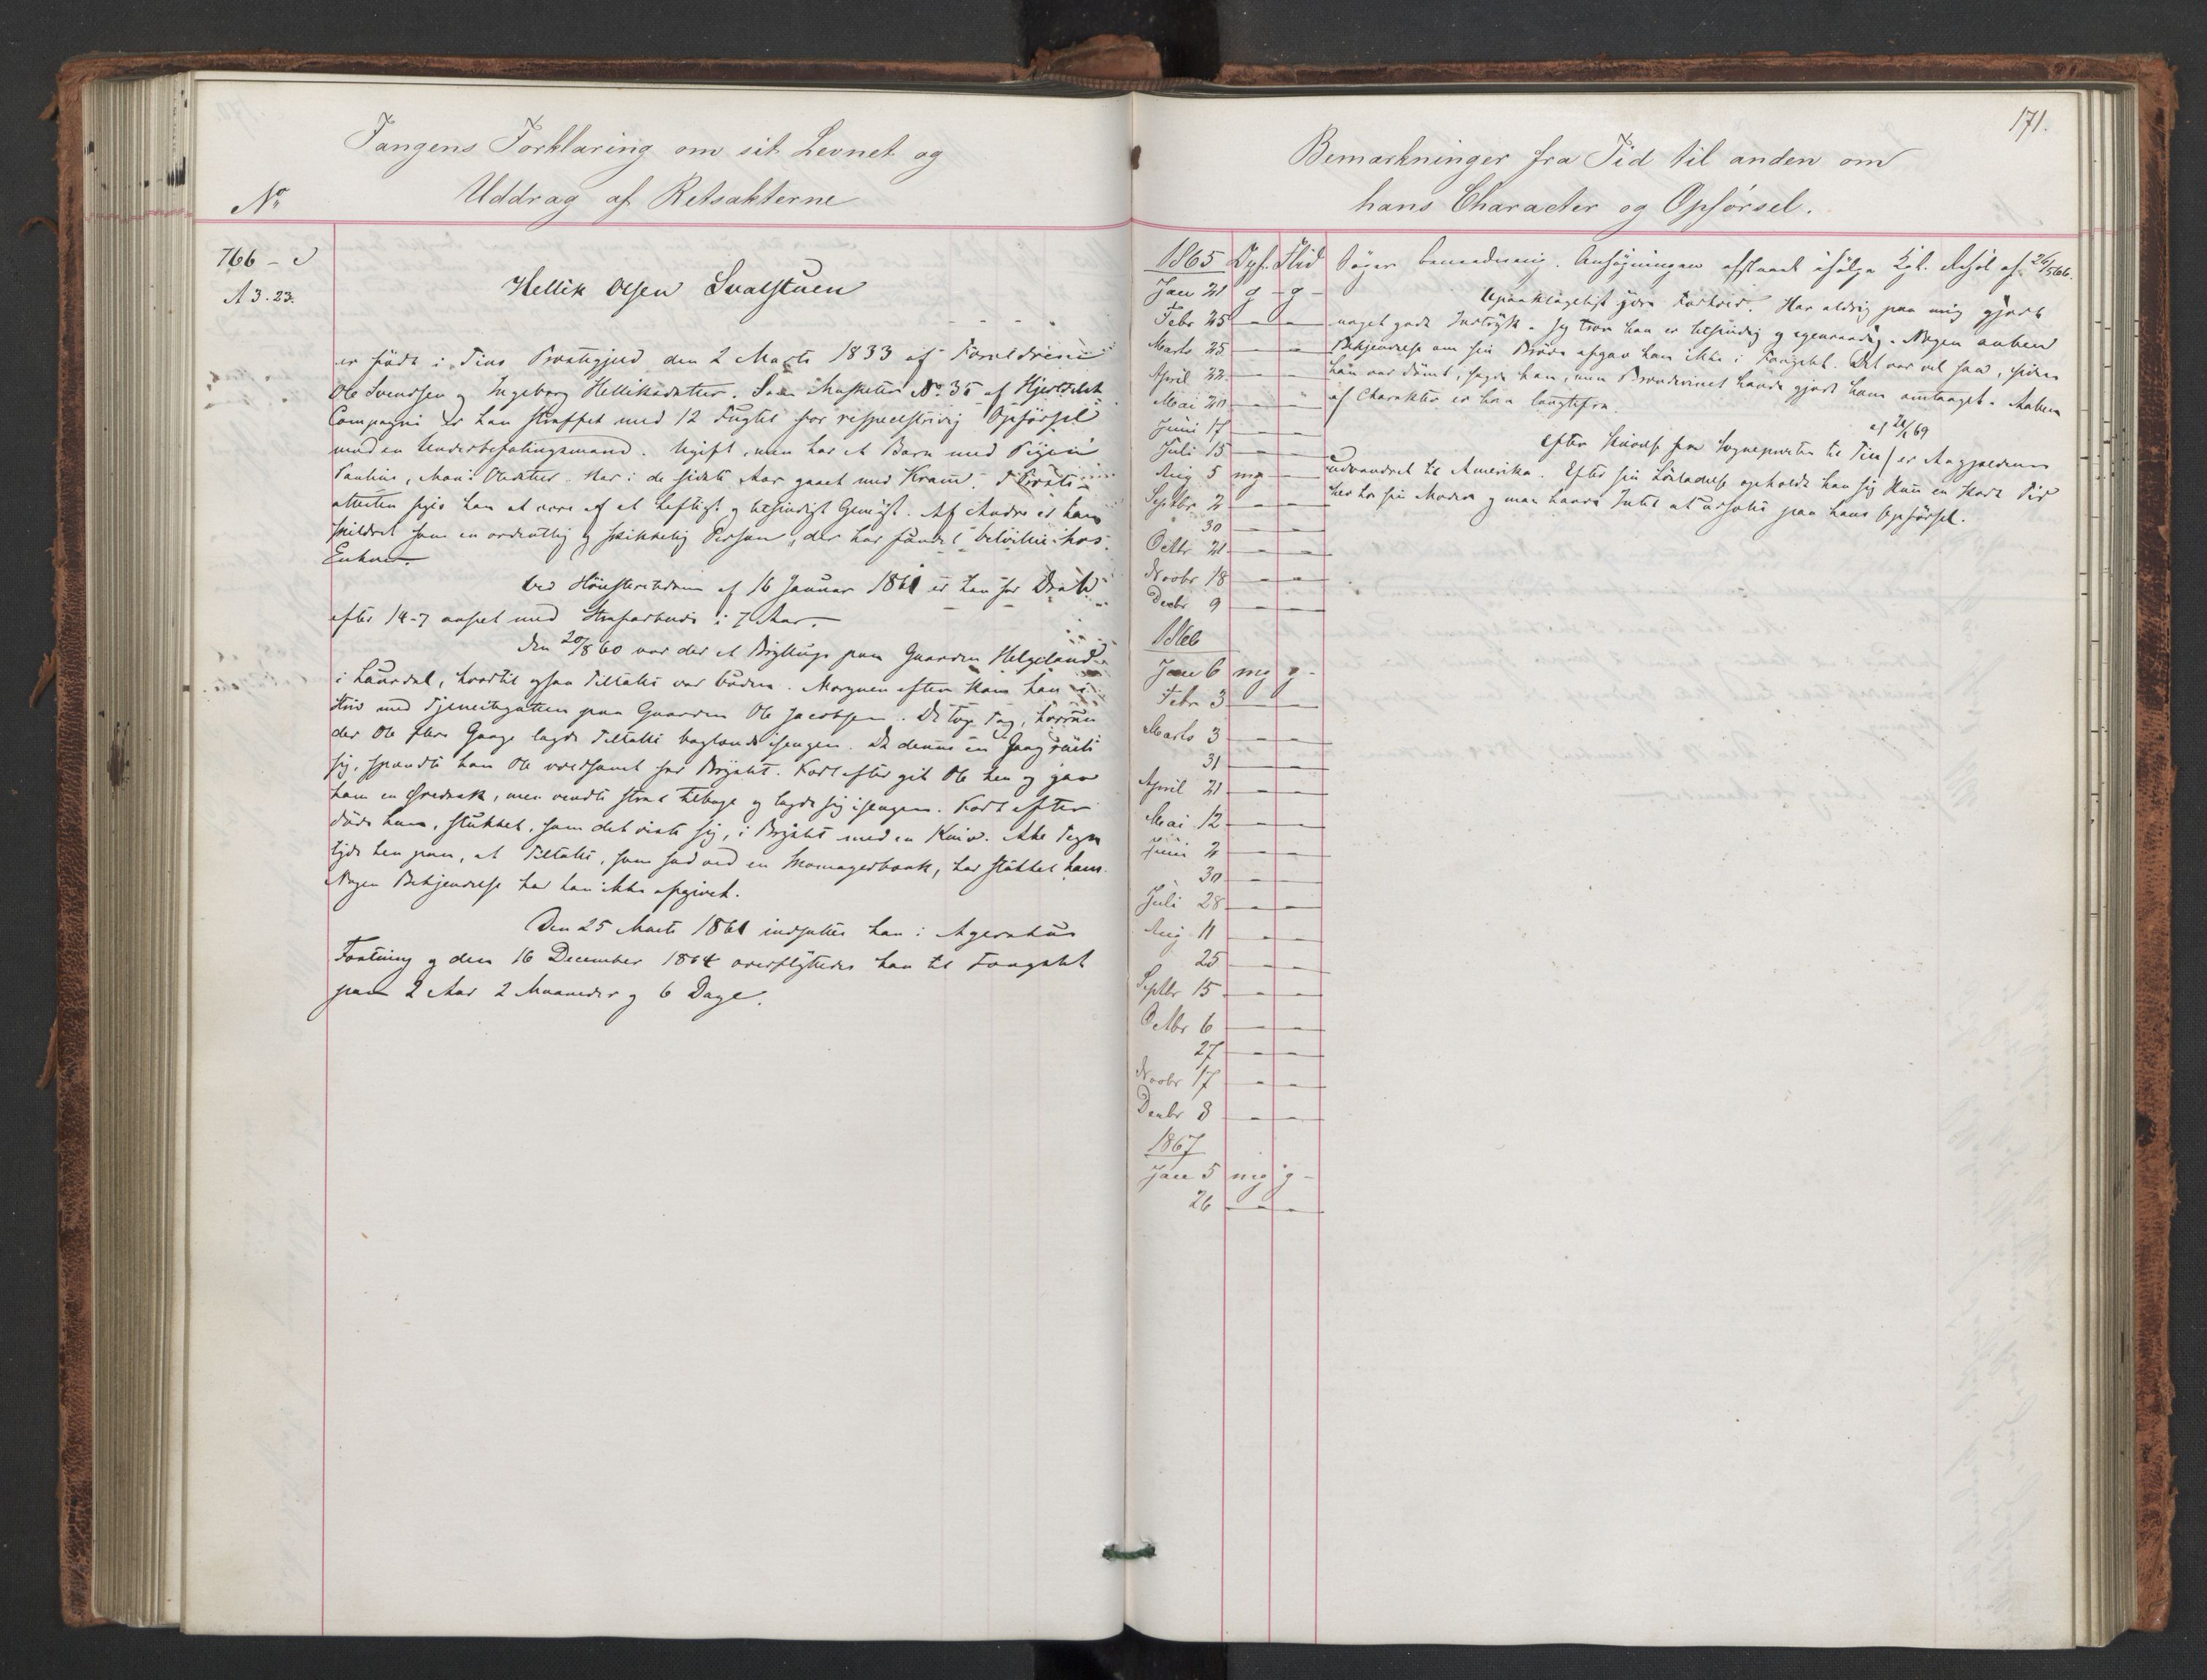 Fangens Forklaring om sit Levnet og
Uddrag af Retsakterne
No
766 -
A 3. 23.
Hellik Olsen Svalstuen
er født i Tins Præstegjeld den 2 Marts 1833 af Forældrene
Ole Svendsen og Ingeborg Helliksdatter. Som Musketer No 35 af Hjertdals
Compagni er han straffet med 12 Fugtel for respectstridig Opførsel
mod en Underbefalingsmand. Ugift, men har et Barn med Pigen
Pauline, Olsdatter. Har i de sidste Aar gaaet med Kram. I Præste-
attesten siges han at være af et heftigt og betsindigt Gemyt. Af Andre er han
skildret som en ordentlig og skikkelig Person, der har fundet hos
Enhver.
Ved Høiesteretsdom af 16 Januar 1861 er han for Drab
efter 14-7 anseet med Strafarbeide i 7 Aar.
Den 20/8 60 var der et Bryllup paa Gaarden Helgeland
i Laurdal, hvortil ogsaa Tiltalte var buden. Morgenen efter kom han i
Kiv med Tjenestegutten paa Gaarden Ole Jacobsen. De tog Tag, hvorunder
der Ole flere Gange lagde Tiltalte baglænds isengen. Da denne en Gang reiste
sig, spændte han Ole voldsomt for Brystet. Kort efter gik Ole hen og gav
ham en Øredask, men vendte strax tilbage og lagde sig isengen. Kort efter
døde han, stukket, som det viste sig, i Brystet med en Kniv. Alle Tegn
tyde hen paa, at Tiltalte, som sad ved en Skomagerbænk, har stukket ham.
Nogen Bekjendelse har han ikke afgivet.
Den 25 Marts 1861 indsattes han i Agershuus
Fæstning og den 16 December 1864 overflyttedes han til Fængslet
paa 2 Aar 2 Maaneder og 6 Dage.
171.
Bemærkninger fra Tid til anden om
hans Character og Opførsel.
1865 Opf. Flid
Jan 21 g - g -
Febr 25 - -
Marts 25 - -
April 22 - -
Mai 20 - -
Juni 17 - -
Juli 15 - -
Aug 5 mg -
Septbr 2 - -
30 - -
Octbr 21 - -
Novbr 18 - -
Decbr 9 - -
1866
Jan 6 mg g -
Febr 3 - -
Marts 3 - -
31 - -
April 21 - -
Mai 12 - -
Juni 2 - -
30 - -
Juli 28 - -
Aug 11 - -
25 - -
Septbr 15 - -
Octbr 6 - -
27 - -
Novbr 17 - -
Decbr 8 - -
1867
Jan 5 mg g -
26 - -
Søger benaadning. Ansøgningen afslaaet ifølge Kgl. Resol. af 26/5 66.
Upaaklageligt Forhold. Har aldrig paa mig gjort
noget godt Indtryk. Jeg tror han er betsindig og egenraadig. Nogen aaben
Bekjendelse om sin Brøde afgav han ikke i Fængslet. Det var vel saa, siden
han var dømt, sagde han, men Brændevinet havde gjort ham omtaaget. Aaben
af Charakter er han langtifra.
Efter Skrivelse fra Sognepresten til Tin (af 28/1 69) er Angjældende
udvandret til Amerika. Efter sin Løsladelse opholdt han sig kun en kort Tid
her hos sin Moder og man havde Intet at udsætte paa hans Opførsel.